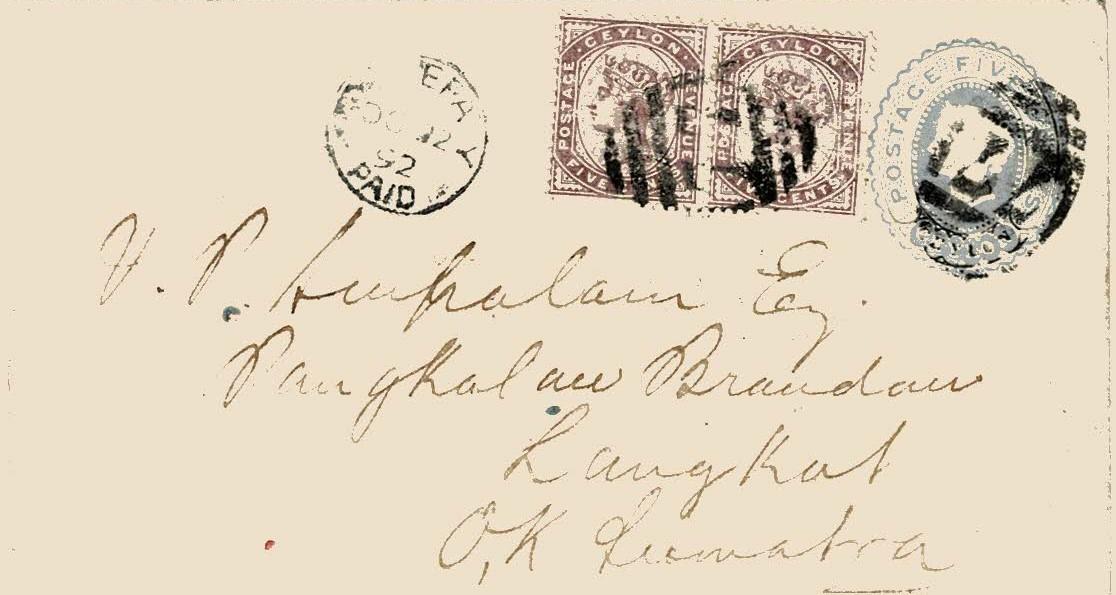 CEYLON
POSTAGE
REVENUE
FIVE CENTS
CEYLON
POSTAGE
REVENUE
FIVE CENTS
POSTAGE FIVE
CEYLON
92
PAID
V. P.
Esq.
Pangkalan Brandan
Langkat
O,K Sumatra